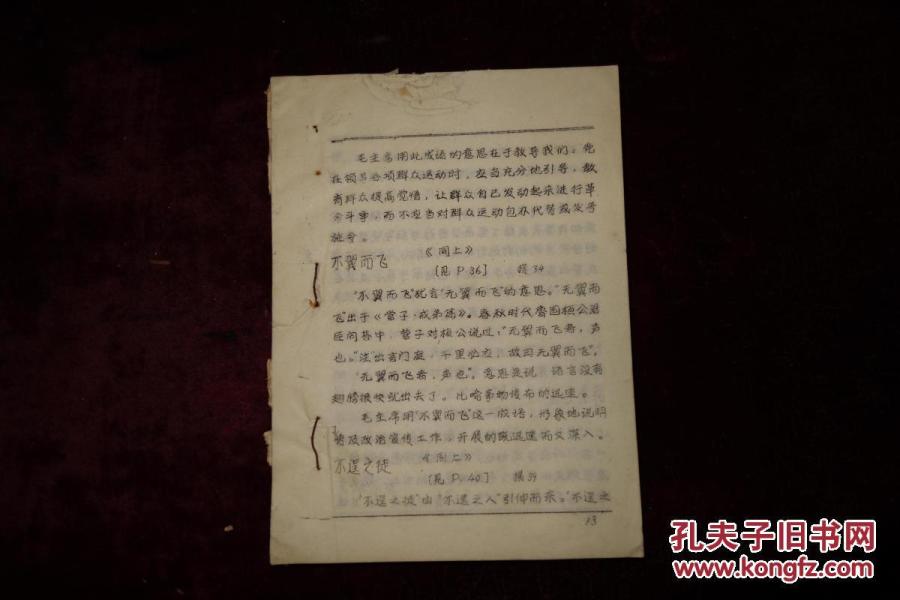 毛主席用此成语的意思在于教导我们。党
在领导各项群众运动时，应当充分地引导，教
育群众提高觉悟，让群众自己发动起来进行革
命斗争，而不应当对群众运动包办代替或发号
施令。
不翼而飞 《同上》
[见P36] 撰34
"不翼而飞"犹言"无翼而飞"的意思。"无翼而
飞"出于《管子·戒弟》。春秋时代齐国桓公君
臣问答中，管子对桓公说过："无翼而飞者，声
也。"注"出言门庭，千里必应，故曰无翼而飞"。
"无翼而飞者，声也"。意思是说，语言没有
翅膀很快就出去了。比喻事物传布的迅速。
毛主席用"不翼而飞"这一成语，形象地说明
普及政治宣传工作，开展的既迅速而又深入。
不逞之徒 《同上》
[见P.40] 撰39
"不逞之徒"由"不逞之人"引伸而来。"不逞之
13
孔夫子旧书网
www.kongfz.com